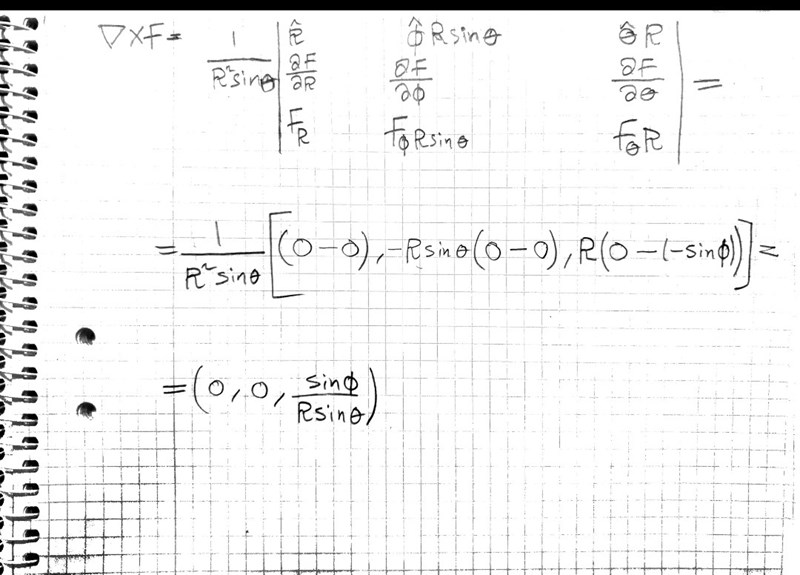 ∇×F = 1/(R²sinθ) | R̂ φ̂Rsinθ θ̂R |
| ∂F/∂R ∂F/∂φ ∂F/∂θ | =
| F_R F_φRsinθ F_θR |
= 1/(R²sinθ) [(0-0), -Rsinθ(0-0), R(0-(-sinφ))] =
= (0, 0, sinφ/(Rsinθ))